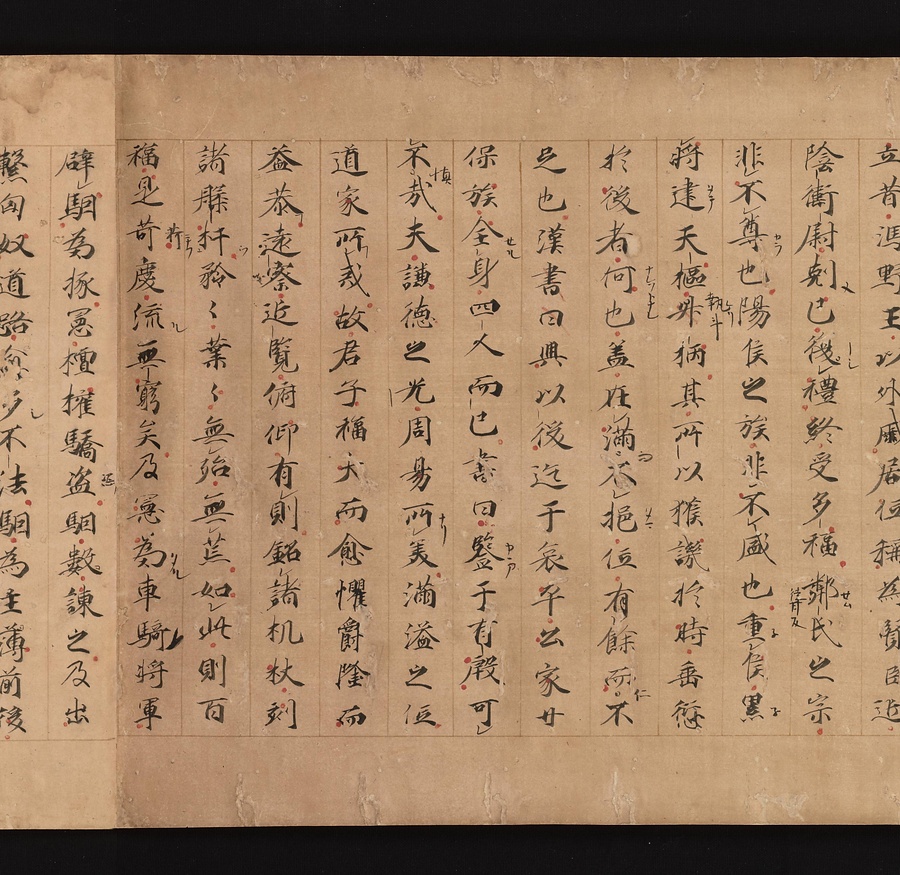 立昔馮野王以外戚居位稱為賢臣近
陰衛尉剋己復禮終受多福鄰氏之宗
非不尊也陽侯之族非不盛也重侯累
將建天樞斗柄其所以獲譏於時垂愆
於後者何也盖在滿不挹位有餘而不
足也漢書曰興以後迄于哀平公家廿
保族全身四人而已書曰鑒于有殷可
不哉夫謙德之光周易所美滿溢之位
道家所戒故君子福大而愈懼爵隆而
益恭遠察近覽俯仰有則銘諸机杖刻
諸杅矜〻業〻無殆無荒如此則百
福是苛慶流無窮矣及憲為車騎將軍
辟駰為掾憲擅權驕恣駰數諫之及出
擊匈奴道路愈多不法駰為主薄前後